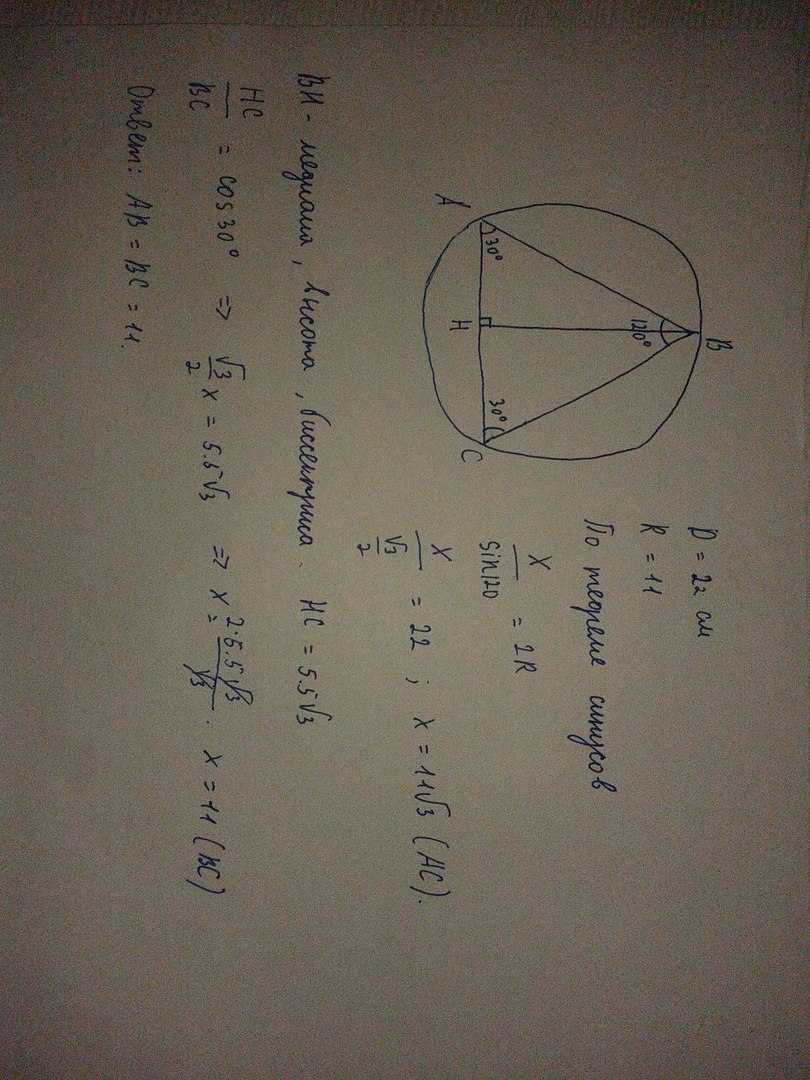 D = 22 см
R = 11
По теореме синусов
x/sin120 = 2R
x/(√3/2) = 22 ; x = 11√3 (AC).
B
120°
30°
30°
A
H
C
BH - медиана, высота, биссектриса. HC = 5.5√3
HC/BC = cos30° => √3/2 x = 5.5√3 => x = 2·5.5√3/√3. x = 11 (BC)
Ответ: AB = BC = 11.